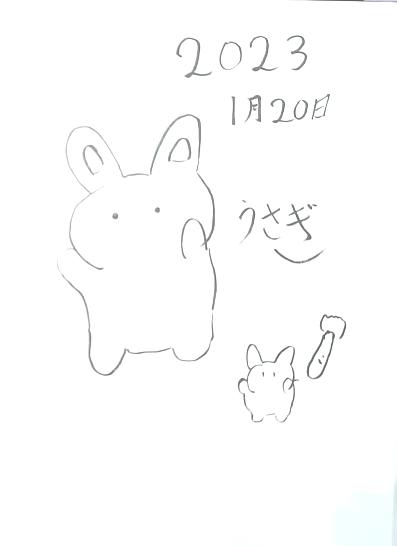 2023
1月20日
うさぎ